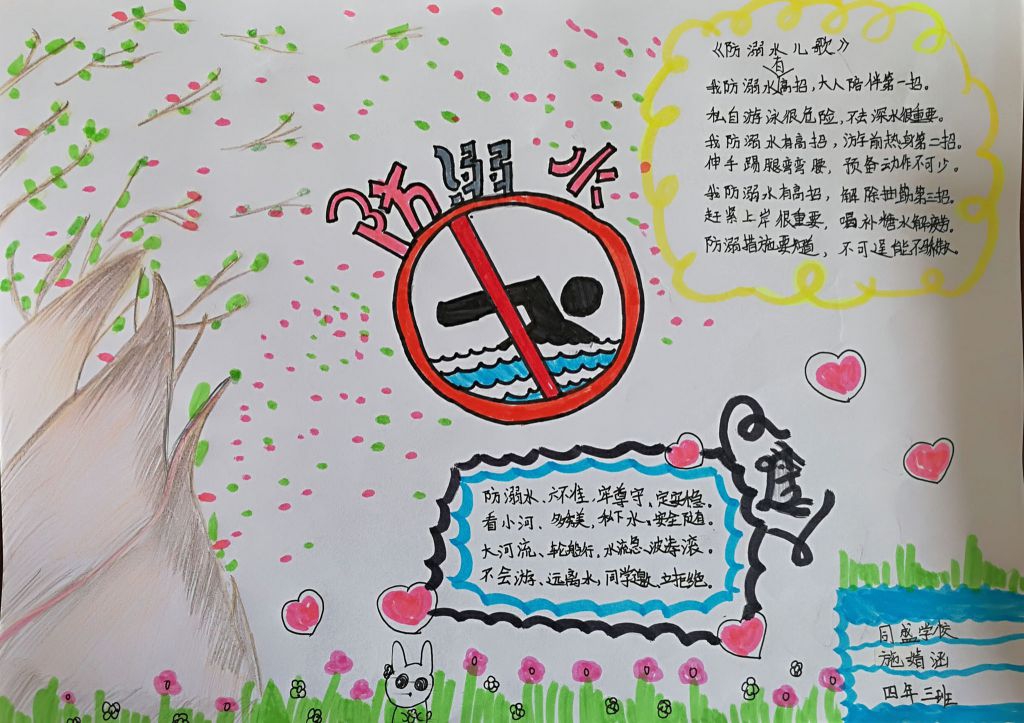 防溺水
《防溺水儿歌》
我防溺水有高招，大人陪伴第一招。
私自游泳很危险，不去深水很重要。
我防溺水有高招，游前热身第二招。
伸手踢腿弯弯腰，预备动作不可少。
我防溺水有高招，解除抽筋第三招。
赶紧上岸很重要，喝补糖水解疲劳。
防溺措施要知道，不可逞能不骄傲。
防溺水、六不准，牢尊守、定要稳。
看小河、多美，私下水、安全随。
大河流、轮船行，水流急、波涛滚。
不会游、远离水，同学邀、立拒绝。
同盛学校
施婧涵
四年三班